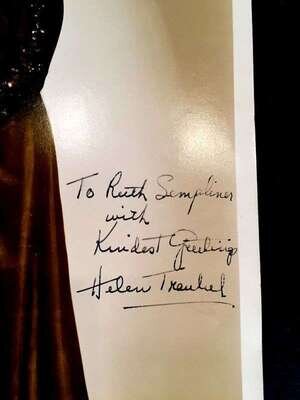 To Ruth Sempliner
with
Kindest Greetings
Helen Traubel